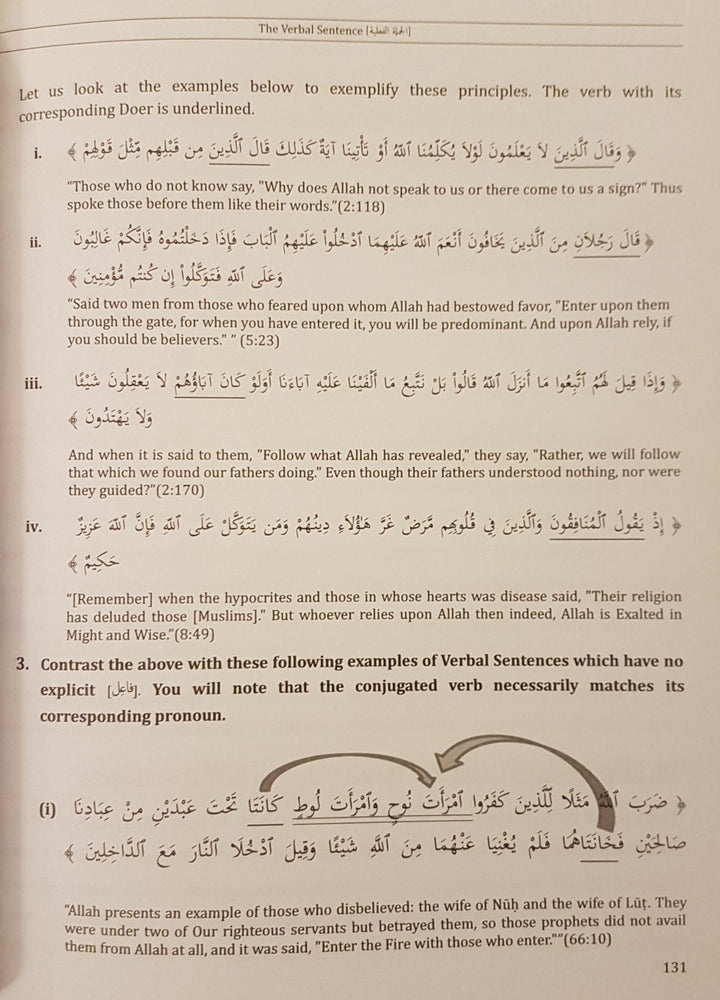 The Verbal Sentence [الجملة الفعلية]
Let us look at the examples below to exemplify these principles. The verb with its
corresponding Doer is underlined.
i. ﴿ وَقَالَ ٱلَّذِينَ لَا يَعْلَمُونَ لَوْلَا يُكَلِّمُنَا ٱللَّهُ أَوْ تَأْتِينَا آيَةٌ كَذَٰلِكَ قَالَ ٱلَّذِينَ مِن قَبْلِهِم مِّثْلَ قَوْلِهِمْ ﴾
"Those who do not know say, "Why does Allah not speak to us or there come to us a sign?" Thus
spoke those before them like their words."(2:118)
ii. ﴿ قَالَ رَجُلَانِ مِنَ ٱلَّذِينَ يَخَافُونَ أَنْعَمَ ٱللَّهُ عَلَيْهِمَا ٱدْخُلُواْ عَلَيْهِمُ ٱلْبَابَ فَإِذَا دَخَلْتُمُوهُ فَإِنَّكُمْ غَالِبُونَ
وَعَلَى ٱللَّهِ فَتَوَكَّلُواْ إِن كُنتُم مُّؤْمِنِينَ ﴾
"Said two men from those who feared upon whom Allah had bestowed favor, "Enter upon them
through the gate, for when you have entered it, you will be predominant. And upon Allah rely, if
you should be believers." " (5:23)
iii. ﴿ وَإِذَا قِيلَ لَهُمُ ٱتَّبِعُوا مَا أَنزَلَ ٱللَّهُ قَالُواْ بَلْ نَتَّبِعُ مَا أَلْفَيْنَا عَلَيْهِ آبَاءَنَا أَوَلَوْ كَانَ آبَاؤُهُمْ لَا يَعْقِلُونَ شَيْئًا
وَلَا يَهْتَدُونَ ﴾
And when it is said to them, "Follow what Allah has revealed," they say, "Rather, we will follow
that which we found our fathers doing." Even though their fathers understood nothing, nor were
they guided?"(2:170)
iv. ﴿ إِذْ يَقُولُ ٱلْمُنَافِقُونَ وَٱلَّذِينَ فِي قُلُوبِهِم مَّرَضٌ غَرَّ هَٰؤُلَاءِ دِينُهُمْ وَمَن يَتَوَكَّلْ عَلَى ٱللَّهِ فَإِنَّ ٱللَّهَ عَزِيزٌ
حَكِيمٌ ﴾
"[Remember] when the hypocrites and those in whose hearts was disease said, "Their religion
has deluded those [Muslims]." But whoever relies upon Allah then indeed, Allah is Exalted in
Might and Wise."(8:49)
3. Contrast the above with these following examples of Verbal Sentences which have no
explicit [فَاعِل]. You will note that the conjugated verb necessarily matches its
corresponding pronoun.
(i) ﴿ ضَرَبَ ٱللَّهُ مَثَلًا لِّلَّذِينَ كَفَرُوا ٱمْرَأَتَ نُوحٍ وَٱمْرَأَتَ لُوطٍ كَانَتَا تَحْتَ عَبْدَيْنِ مِنْ عِبَادِنَا
صَالِحَيْنِ فَخَانَتَاهُمَا فَلَمْ يُغْنِيَا عَنْهُمَا مِنَ ٱللَّهِ شَيْئًا وَقِيلَ ٱدْخُلَا ٱلنَّارَ مَعَ ٱلدَّاخِلِينَ ﴾
"Allah presents an example of those who disbelieved: the wife of Nūḥ and the wife of Lūṭ. They
were under two of Our righteous servants but betrayed them, so those prophets did not avail
them from Allah at all, and it was said, "Enter the Fire with those who enter.""(66:10)
131